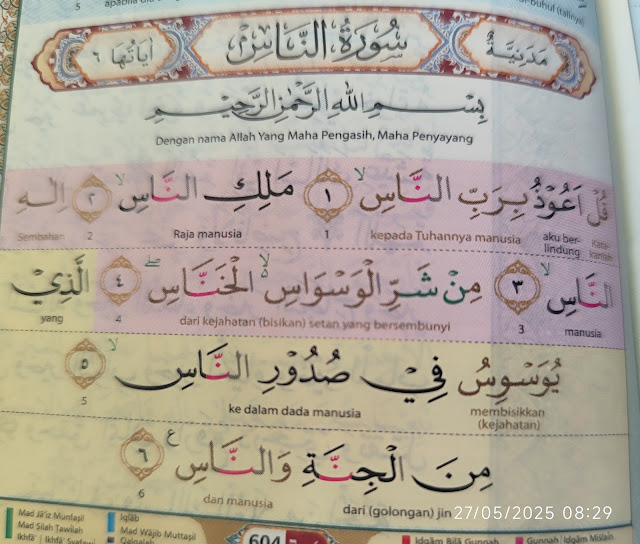 5 apabila
اٰيَاتُهَا ٦ سُوْرَةُ النَّاسِ مَدَنِيَّةٌ
بِسْمِ اللّٰهِ الرَّحْمٰنِ الرَّحِيْمِ
Dengan nama Allah Yang Maha Pengasih, Maha Penyayang
قُلْ اَعُوْذُ بِرَبِّ النَّاسِ ۙ ١ مَلِكِ النَّاسِ ۙ ٢ اِلٰهِ
Katakanlah aku berlindung kepada Tuhannya manusia 1 Raja manusia 2 Sembahan
النَّاسِ ۙ ٣ مِنْ شَرِّ الْوَسْوَاسِ ەۙ الْخَنَّاسِ ۖ ٤ الَّذِيْ
manusia 3 dari kejahatan (bisikan) setan yang bersembunyi 4 yang
يُوَسْوِسُ فِيْ صُدُوْرِ النَّاسِ ۙ ٥
membisikkan (kejahatan) ke dalam dada manusia 5
مِنَ الْجِنَّةِ وَالنَّاسِ ࣖ ٦
dari (golongan) jin dan manusia 6
27/05/2025 08:29
Mad Jā'iz Munfaṣil Iqlāb
Mad Silah Ṭawīlah Mad Wājib Muttaṣil
Ikhfā' | Ikhfā' Syafawī Qalqalah
604
Idgām Bilā Gunnah Gunnah Idgām Miṡlain